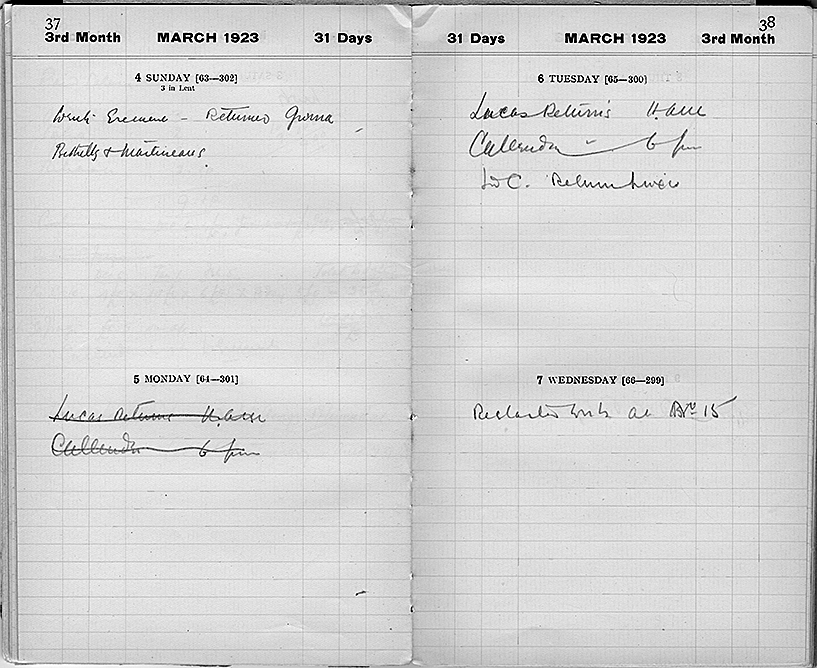 37
3rd Month MARCH 1923 31 Days
4 SUNDAY [63—302]
3 in Lent
Returned Gurna
Bethells & Martineaus
5 MONDAY [64—301]
Lucas returns 11. am
Callender 6 pm
38
31 Days MARCH 1923 3rd Month
6 TUESDAY [65—300]
Lucas Returns 11 am
Callender " 6 pm
Ld C. Return Luxor
7 WEDNESDAY [66—299]
work at No 15